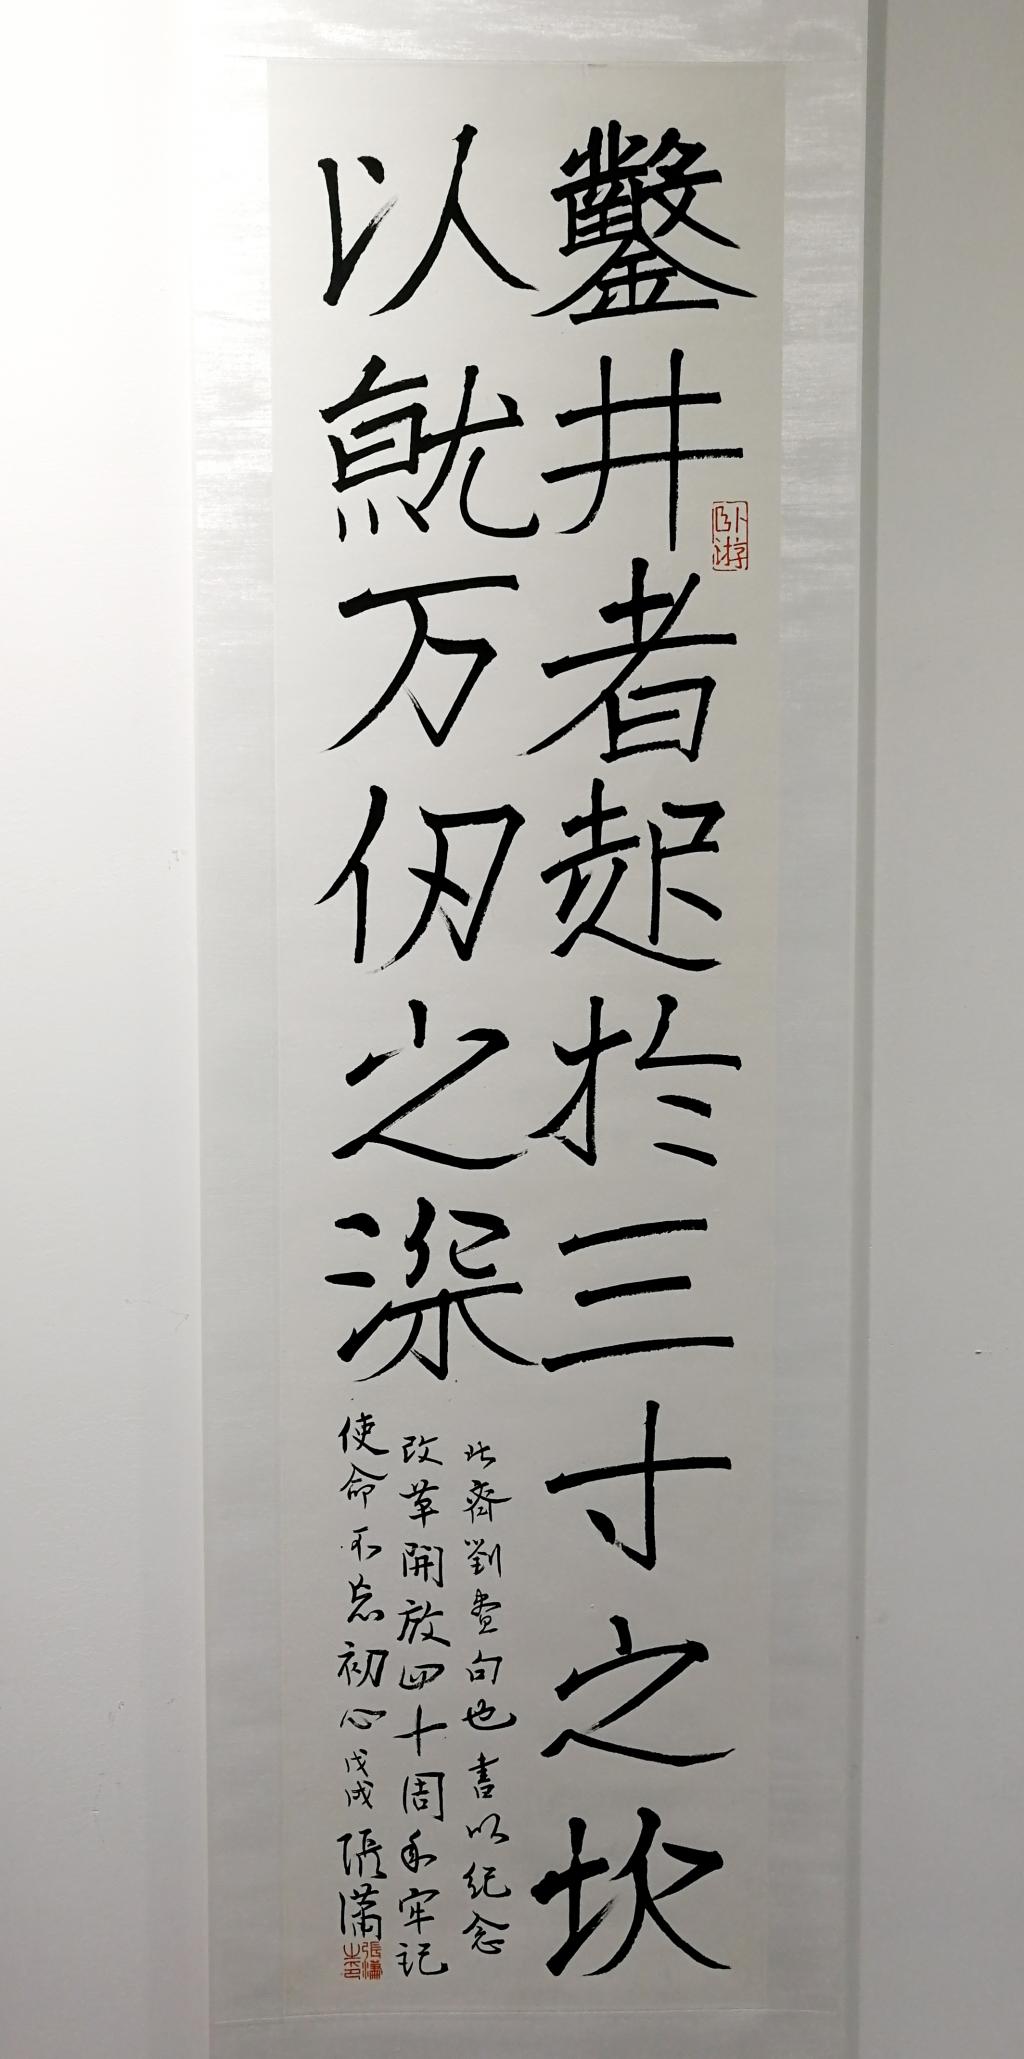 鑿井者起於三寸之坎
以就万仞之深
北齊劉晝句也書以紀念
改革開放四十周年牢記
使命不忘初心戊戌張瀟
卧游
張瀟之印